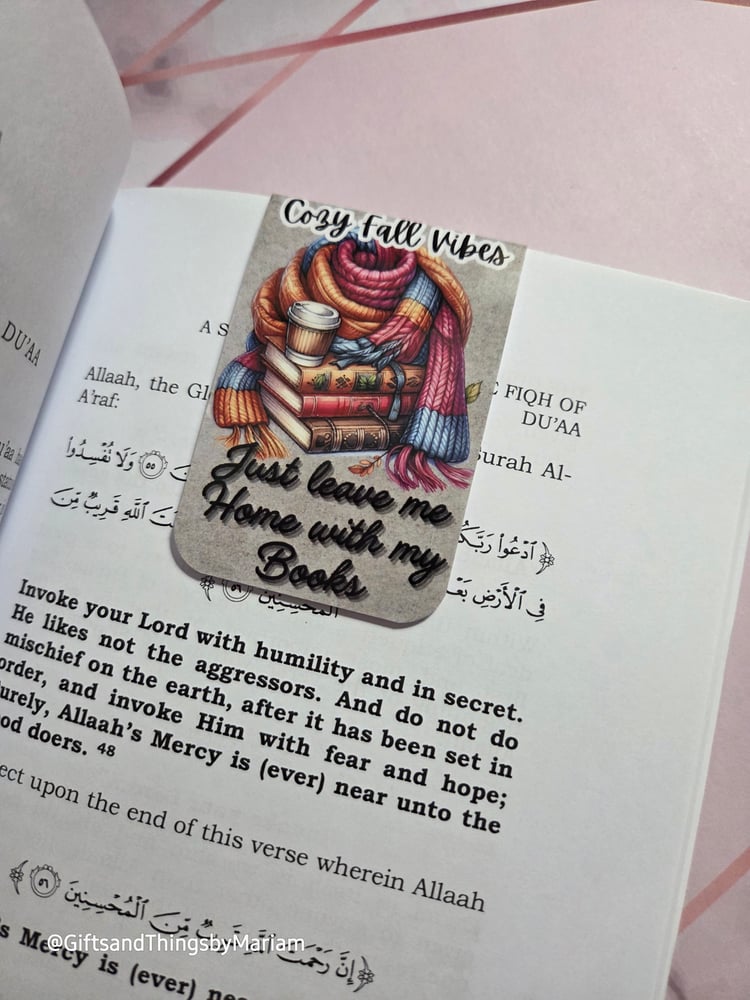 Cozy Fall Vibes
Just leave me
Home with my
Books
DU'AA
A S
FIQH OF
DU'AA
Allaah, the Gl
Surah Al-
A'raf:
﴿ ٱدْعُوا۟ رَبَّكُ
٥٥ وَلَا تُفْسِدُوا۟
فِى ٱلْأَرْضِ بَعْ
ٱللَّهِ قَرِيبٌ مِّنَ
ٱلْمُحْسِنِينَ ٥٦ ﴾
Invoke your Lord with humility and in secret.
He likes not the aggressors. And do not do
mischief on the earth, after it has been set in
order, and invoke Him with fear and hope;
urely, Allaah's Mercy is (ever) near unto the
ood doers. 48
ect upon the end of this verse wherein Allaah
﴿ إِنَّ رَحْمَتَ ٱللَّهِ قَرِيبٌ مِّنَ ٱلْمُحْسِنِينَ ٥٦ ﴾
's Mercy is (ever) nea
@GiftsandThingsbyMariam